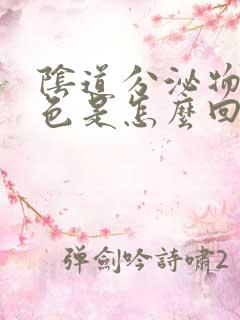 陰道分泌物
色是怎麼回
彈劍吟詩嘯2